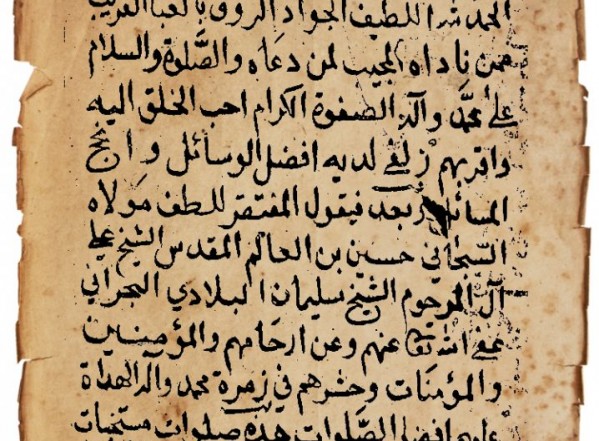 الحمد لله اللطيف الجواد الرؤف بالعباد القريب
ممن ناداه المجيب لمن دعاه والصلوة والسلام
على محمد وآله الصفوة الكرام احب الخلق اليه
واقربهم زلفى لديه افضل الوسائل وانجح
المسائل وبعد فيقول المفتقر للطف مولاه
السبحاني حسين بن العالم المقدس الشيخ علي
آل المرحوم الشيخ سليمان البلادي البحراني
عفى الله تعالى عنهم وعن ارحامهم والمؤمنين
والمؤمنات وحشرهم في زمرة محمد وآله الهداة
عليهم افضل الصلوات هذه صلوات مستحبات